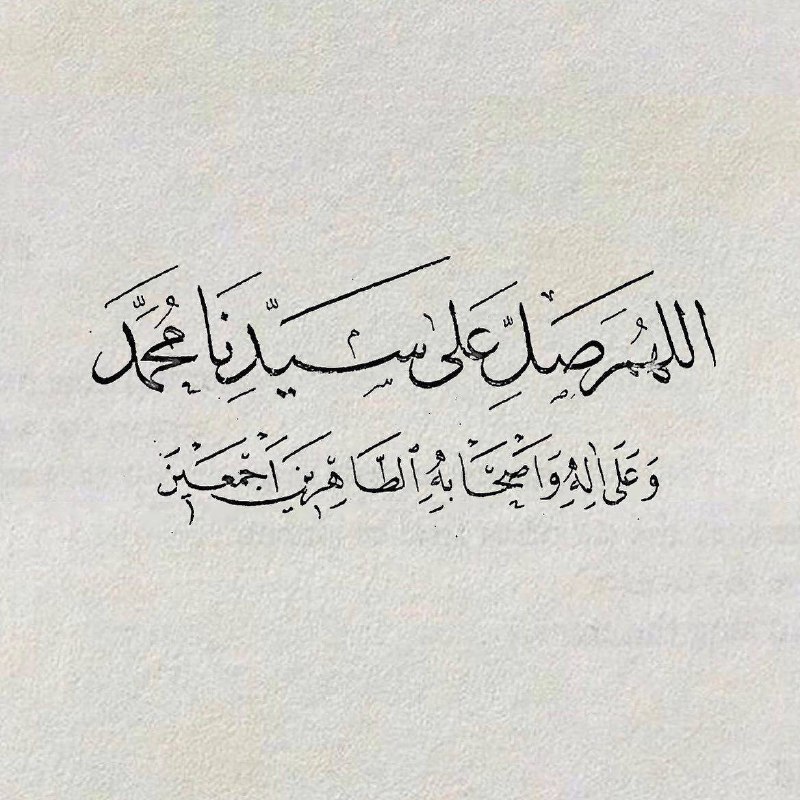 اللهُمَّ صَلِّ عَلٰى سَيِّدِنَا مُحَمَّد
وَعَلٰى اٰلِهِ وَاَصْحَابِهِ ٱلطَّاهِرِينَ اَجْمَعِينَ